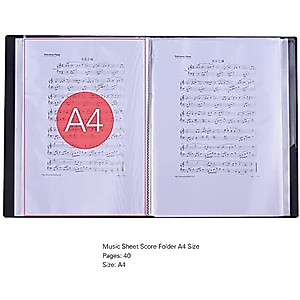 A4
Music Sheet Score Folder A4 Size
Pages: 40
Size: A4